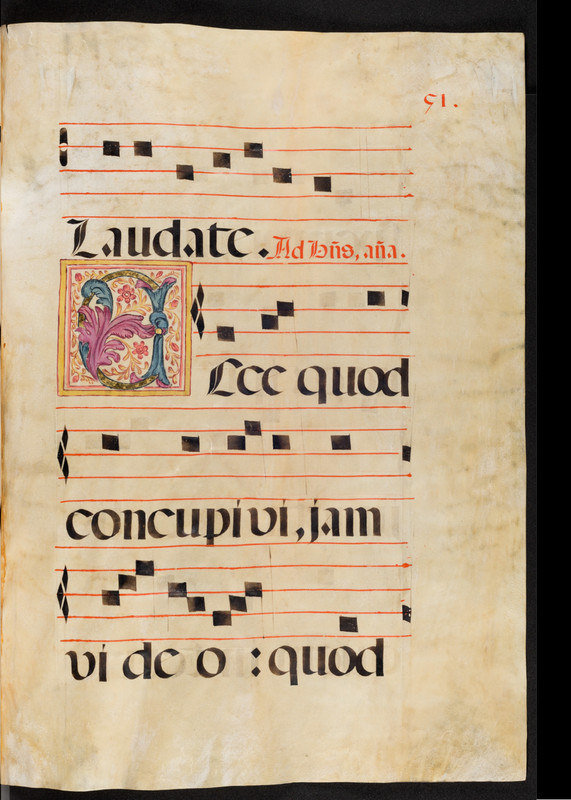 51.
Laudate. Ad Bñs, aña.
Ecce quod
concupivi, jam
vi de o : quod